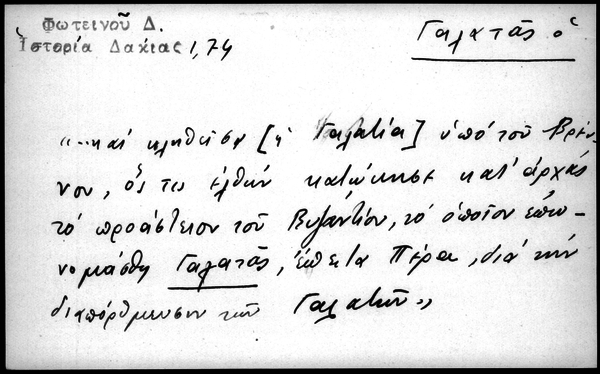 Φωτεινοῦ Δ.
Ἱστορία Δακιας 1,74
Γαλατᾶς ὁ
"...καί κληθεῖσα [ἡ Γαλατία] ὑπό τοῦ Βρέν-
νου, ὅς ἐλθών κατῴκησε κατ' ἀρχάς
τό προάστειον τοῦ Βυζαντίου, τό ὁποῖον ἐπω-
νομάσθη Γαλατᾶς, ἔπειτα Πέρα, διά τήν
διαπόρθμευσιν τῶν Γαλατῶν"